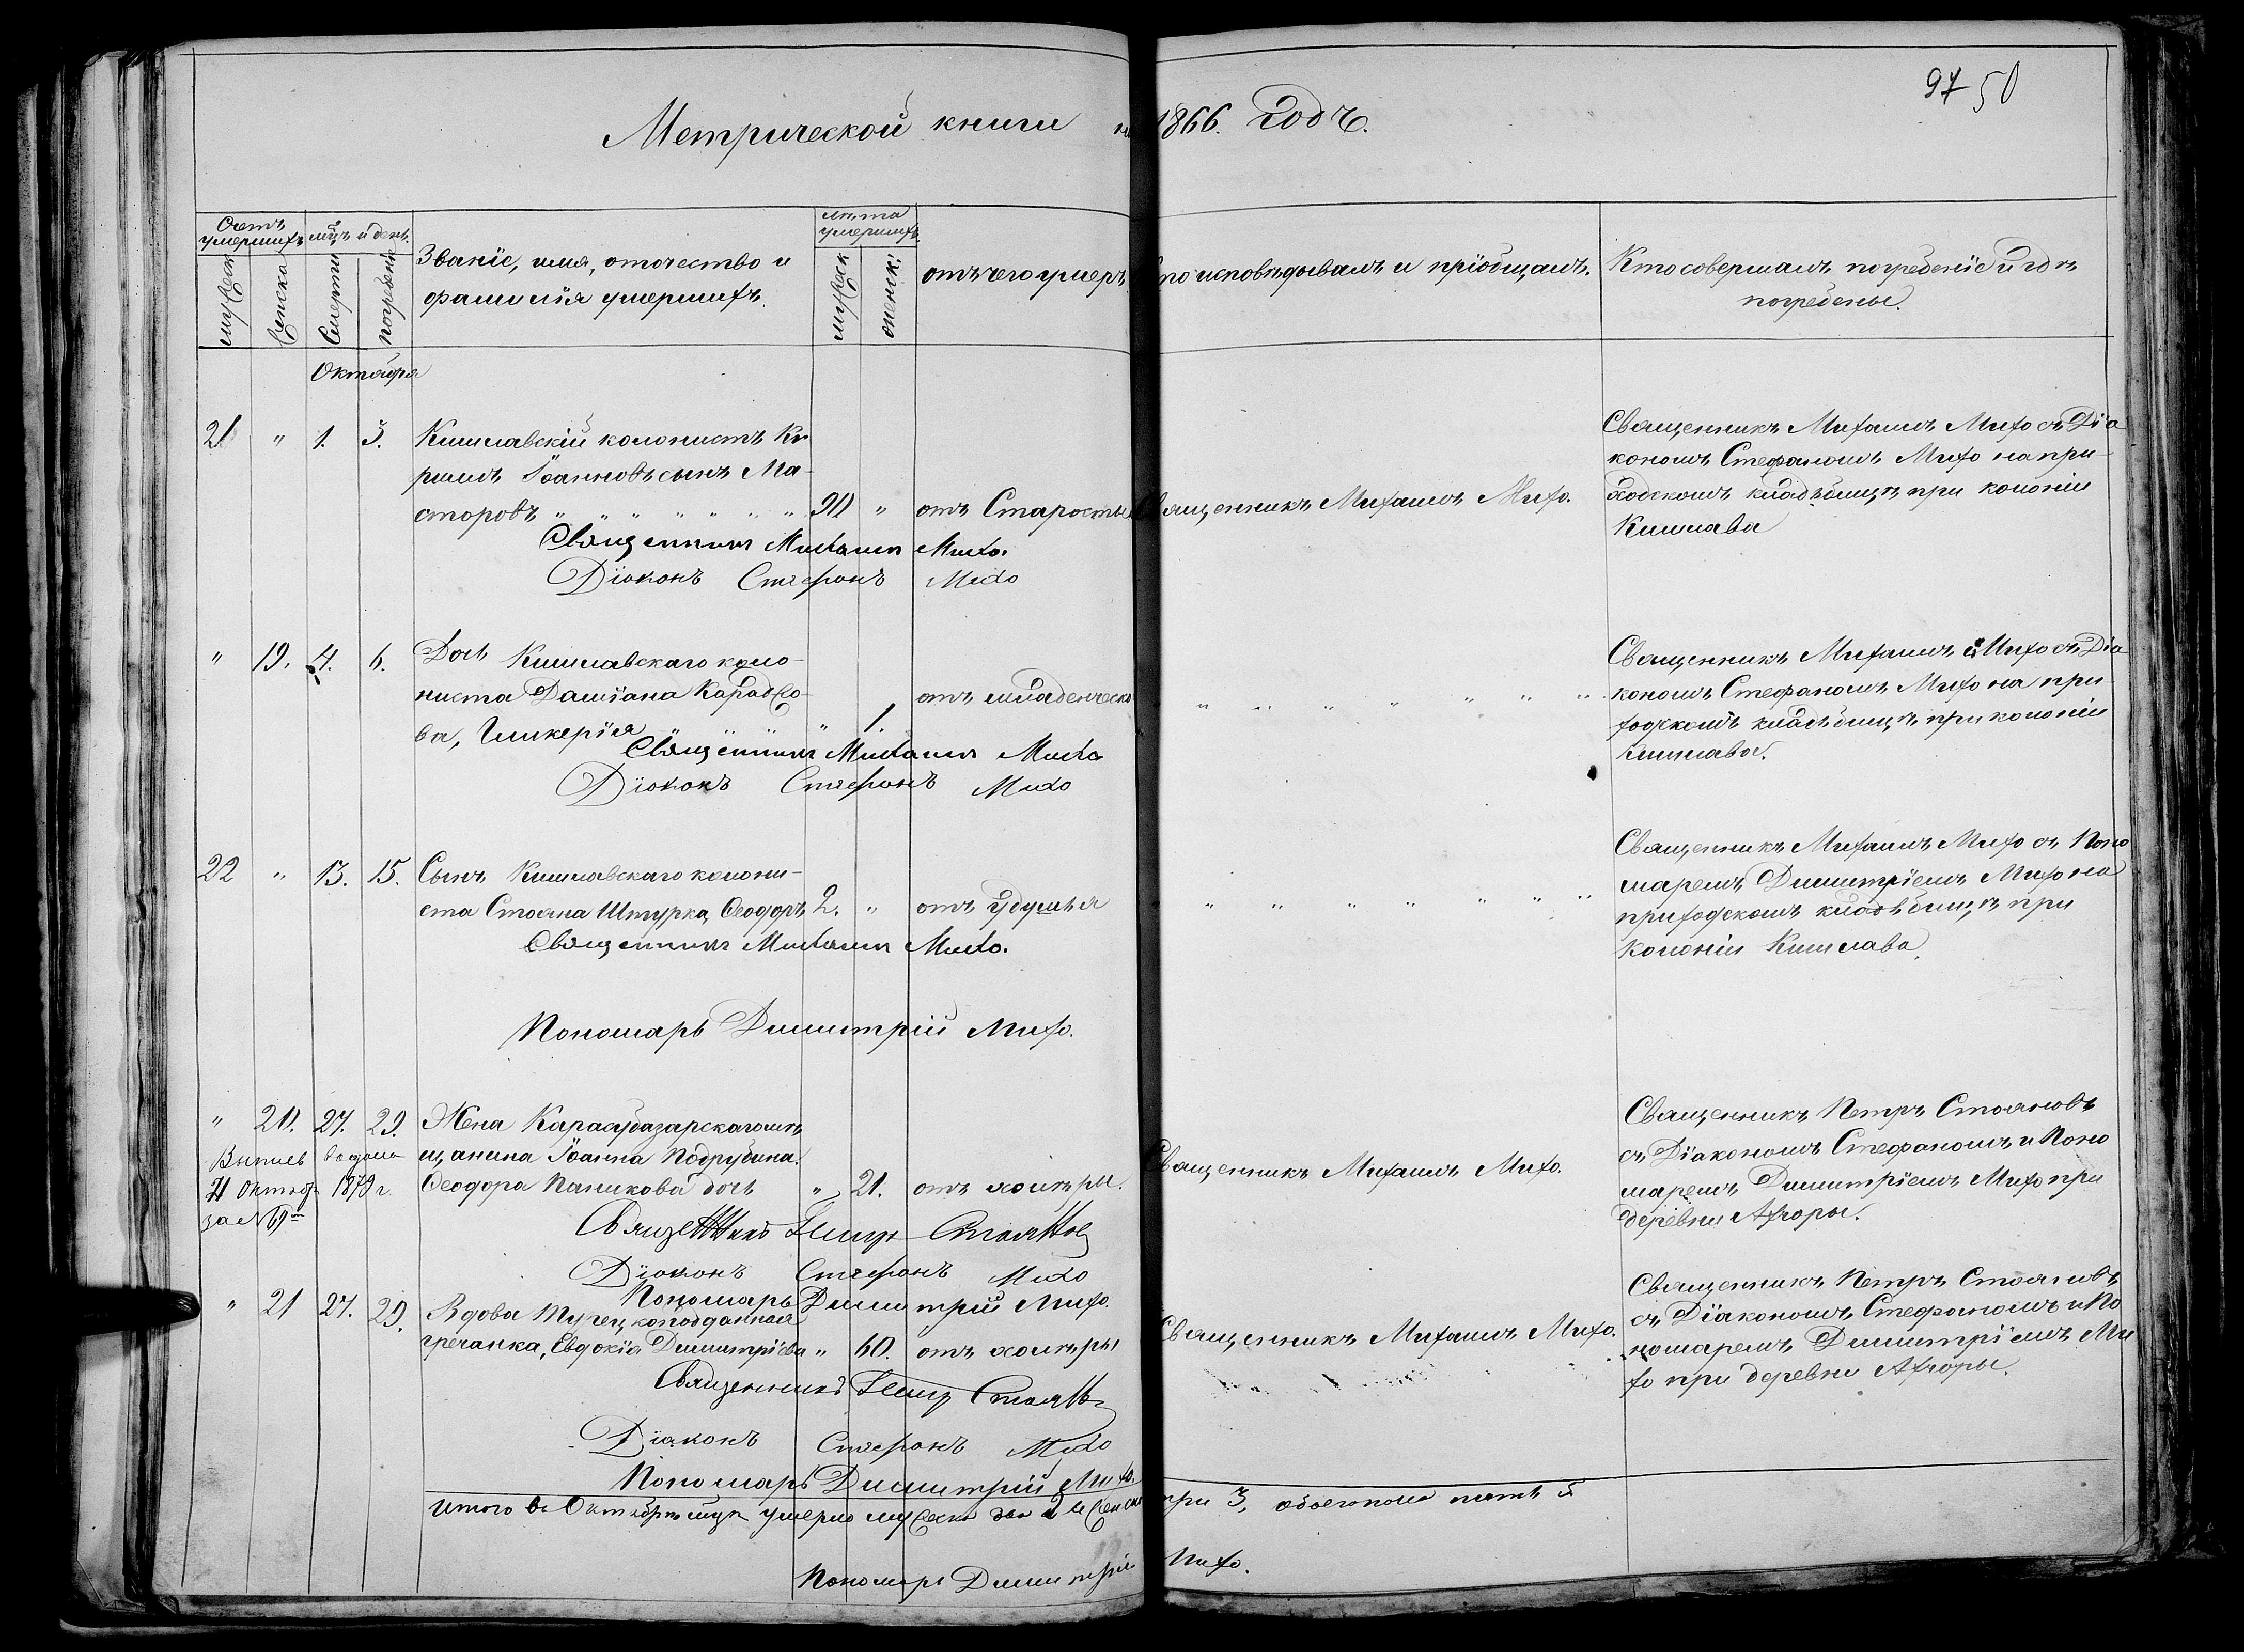 97 50
Метрической книги на 1866. Годъ.
Счетъ умершихъ
мужеск
женска
мцъ и день.
Смерти
погребенія
Званіе, имя, отчество и
фамилія умершихъ.
лѣта умершихъ
мужеск
женск:
отъ чего умеръ
Кто исповѣдывалъ и пріобщалъ.
Кто совершалъ погребеніе и гдѣ
погребены.
Октября
21 " 1. 3. Кишлавскій колонистъ Ки
рилъ Іоанновъ сынъ Ма-
сторовъ " " " " " " " 90 " отъ Старости Священникъ Михаилъ Михо.
Священникъ Михаилъ Михо съ Діа
кономъ Стефаномъ Михо на при-
ходскомъ кладбищѣ при колоніи
Кишлава
Священникъ Михаилъ Михо.
Діаконъ Стефанъ Михо
" 19. 4. 6. Дочь Кишлавскаго коло-
ниста Даміана
ва, Гликерія " 1. отъ младенческ " " " " " " "
Священникъ Михаилъ Михо съ Діа
кономъ Стефаномъ Михо на при
ходскомъ кладбищѣ при колоніи
Кишлава.
Священникъ Михаилъ Михо
Діаконъ Стефанъ Михо
22 " 13. 15. Сынъ Кишлавскаго колони-
ста Стояна Штурка, Ѳеодоръ 2. " отъ удушья " " " " " " "
Священникъ Михаилъ Михо съ Поно
маремъ Димитріемъ Михо на
приходскомъ кладбищѣ при
колоніи Кишлава.
Священникъ Михаилъ Михо.
Пономарь Димитрій Михо.
" 20. 27. 29. Жена Карасубазарскаго мѣ
щанина Іоанна Подрубина.
Ѳеодора Паникова дочь " 21. отъ холеры. Священникъ Михаилъ Михо.
Выпись выдана
21 октяб. 1879 г.
за №
Священникъ Петръ Стояновъ
съ Діакономъ Стефаномъ и Поно
маремъ Димитріемъ Михо при
деревни Ахчоры.
Священникъ Петръ Стояновъ
Діаконъ Стефанъ Михо
Пономарь Димитрій Михо.
" 21 27. 29. Вдова Турецкоподданная
гречанка, Евдокія Димитріева " 60. отъ холеры Священникъ Михаилъ Михо.
Священникъ Петръ Стояновъ
съ Діакономъ Стефаномъ и По
номаремъ Димитріемъ Ми
хо при деревни Ахчоры.
Священникъ Петръ Стояновъ
Діаконъ Стефанъ Михо
Пономарь Димитрій Михо.
Итого въ Октябрѣ мцѣ умерло мужеска два 2 и женска три 3, обоего пола пять 5
Пономарь Димитрій Михо.